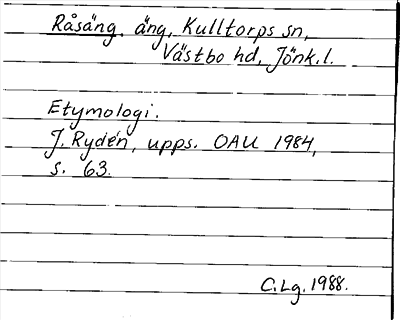 Råsäng, äng, Kulltorps sn,
Västbo hd, Jönk.l.
Etymologi.
J. Rydén, upps. OAU 1984,
s. 63.
C.Lg. 1988.